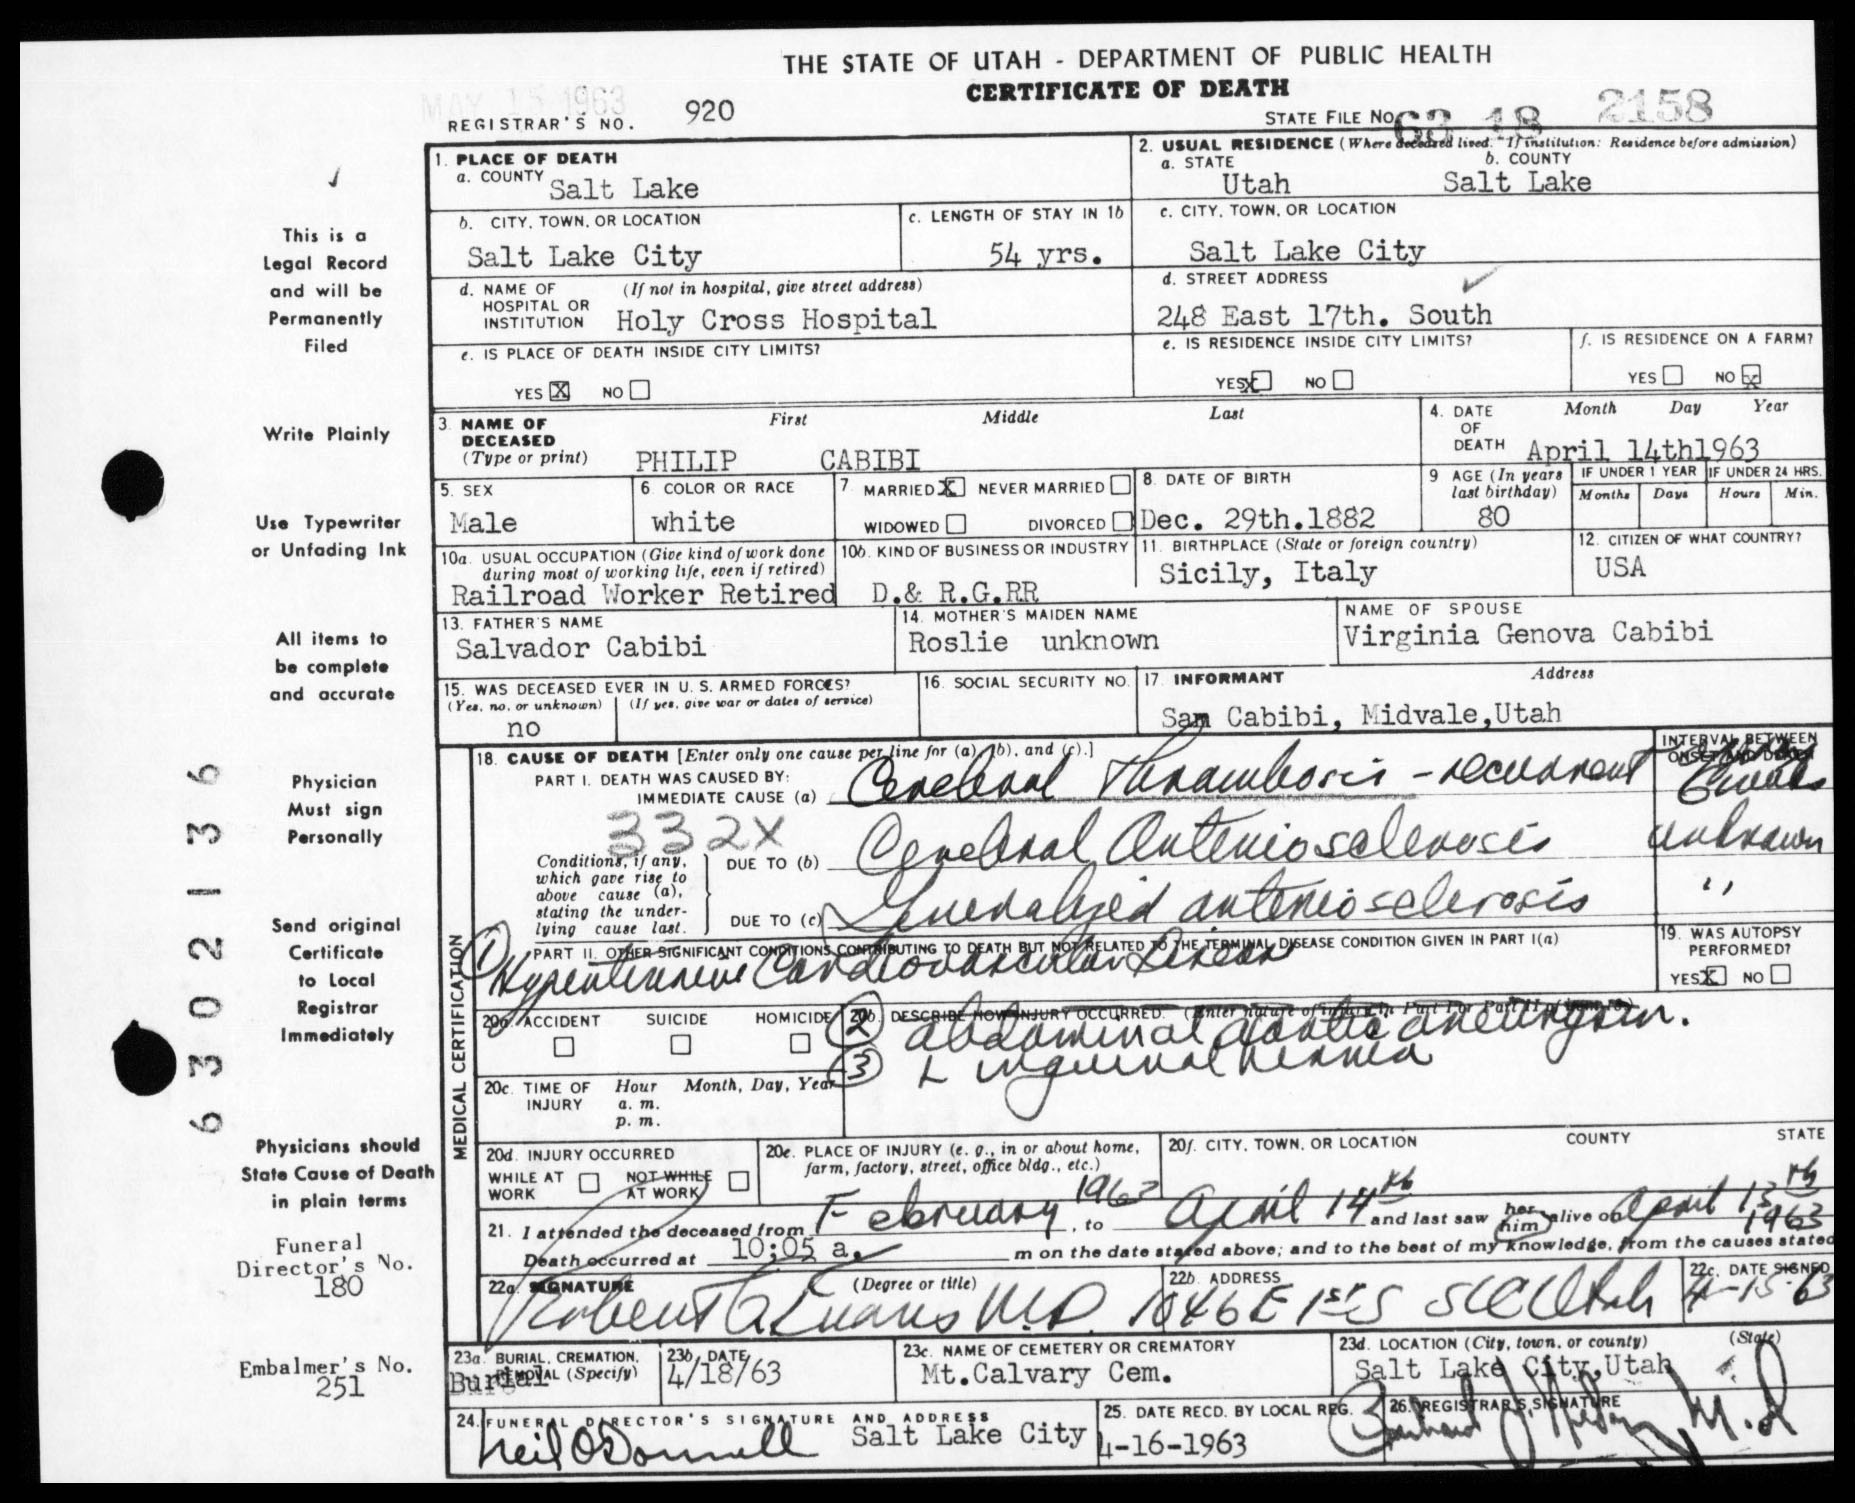 THE STATE OF UTAH - DEPARTMENT OF PUBLIC HEALTH
CERTIFICATE OF DEATH
MAY 15 1963
REGISTRAR'S NO. 920
STATE FILE NO. 63 18 2158
1. PLACE OF DEATH
a. COUNTY Salt Lake
2. USUAL RESIDENCE (Where deceased lived. If institution: Residence before admission)
a. STATE Utah b. COUNTY Salt Lake
b. CITY, TOWN, OR LOCATION Salt Lake City
c. LENGTH OF STAY IN 1b 54 yrs.
c. CITY, TOWN, OR LOCATION Salt Lake City
d. NAME OF HOSPITAL OR INSTITUTION (If not in hospital, give street address) Holy Cross Hospital
d. STREET ADDRESS 248 East 17th. South
e. IS PLACE OF DEATH INSIDE CITY LIMITS? YES X NO
e. IS RESIDENCE INSIDE CITY LIMITS? YES X NO
f. IS RESIDENCE ON A FARM? YES NO X
3. NAME OF DECEASED (Type or print) First Middle Last
PHILIP CABIBI
4. DATE OF DEATH Month Day Year
April 14th1963
5. SEX Male
6 COLOR OR RACE white
7. MARRIED X NEVER MARRIED
WIDOWED DIVORCED
8. DATE OF BIRTH Dec. 29th.1882
9 AGE (In years last birthday) 80
IF UNDER 1 YEAR Months Days
IF UNDER 24 HRS. Hours Min.
10a. USUAL OCCUPATION (Give kind of work done during most of working life, even if retired) Railroad Worker Retired
10b. KIND OF BUSINESS OR INDUSTRY D.& R.G.RR
11. BIRTHPLACE (State or foreign country) Sicily, Italy
12. CITIZEN OF WHAT COUNTRY? USA
13. FATHER'S NAME Salvador Cabibi
14. MOTHER'S MAIDEN NAME Roslie unknown
NAME OF SPOUSE Virginia Genova Cabibi
15. WAS DECEASED EVER IN U. S. ARMED FORCES?
(Yes, no, or unknown) (If yes, give war or dates of service)
no
16. SOCIAL SECURITY NO.
17. INFORMANT Address
Sam Cabibi, Midvale,Utah
MEDICAL CERTIFICATION
18. CAUSE OF DEATH [Enter only one cause per line for (a), (b), and (c).]
INTERVAL BETWEEN ONSET AND DEATH
PART I. DEATH WAS CAUSED BY:
IMMEDIATE CAUSE (a) Cerebral Thrombosis - recurrent 6 weeks
332X
Conditions, if any, which gave rise to above cause (a), stating the underlying cause last.
DUE TO (b) Cerebral Arteriosclerosis unknown
DUE TO (c) Generalized arteriosclerosis "
PART II. OTHER SIGNIFICANT CONDITIONS CONTRIBUTING TO DEATH BUT NOT RELATED TO THE TERMINAL DISEASE CONDITION GIVEN IN PART I(a)
1 Hypertensive Cardiovascular Disease
19. WAS AUTOPSY PERFORMED?
YES X NO
20a. ACCIDENT SUICIDE HOMICIDE
20b. DESCRIBE HOW INJURY OCCURRED. (Enter nature of injury in Part I or Part II of item 18.)
2 abdominal aortic aneurysm.
3 L inguinal hernia
20c. TIME OF INJURY Hour Month, Day, Year
a. m.
p. m.
20d. INJURY OCCURRED
WHILE AT WORK NOT WHILE AT WORK
20e. PLACE OF INJURY (e. g., in or about home, farm, factory, street, office bldg., etc.)
20f. CITY, TOWN, OR LOCATION COUNTY STATE
21. I attended the deceased from February 1963, to April 14th and last saw her him alive on April 13th 1963
Death occurred at 10:05 a. m on the date stated above; and to the best of my knowledge, from the causes stated
22a. SIGNATURE (Degree or title) Robert Evans M.D.
22b. ADDRESS 1046 E 1st S SLC Utah
22c. DATE SIGNED 4-15-63
23a. BURIAL, CREMATION, REMOVAL (Specify) Burial
23b. DATE 4/18/63
23c. NAME OF CEMETERY OR CREMATORY Mt.Calvary Cem.
23d. LOCATION (City, town, or county) (State) Salt Lake City,Utah
24. FUNERAL DIRECTOR'S SIGNATURE AND ADDRESS
Neil O'Donnell Salt Lake City
25. DATE RECD. BY LOCAL REG. 4-16-1963
26. REGISTRAR'S SIGNATURE
M.D
This is a
Legal Record
and will be
Permanently
Filed
Write Plainly
Use Typewriter
or Unfading Ink
All items to
be complete
and accurate
Physician
Must sign
Personally
Send original
Certificate
to Local
Registrar
Immediately
Physicians should
State Cause of Death
in plain terms
Funeral
Director's No.
180
Embalmer's No.
251
6302136